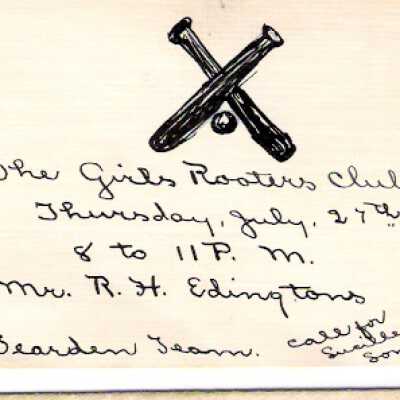 The Girls Rooters Club
Thursday, July, 27th
8 to 11 P. M.
Mr. R. H. Edingtons
Bearden Team.
Call for